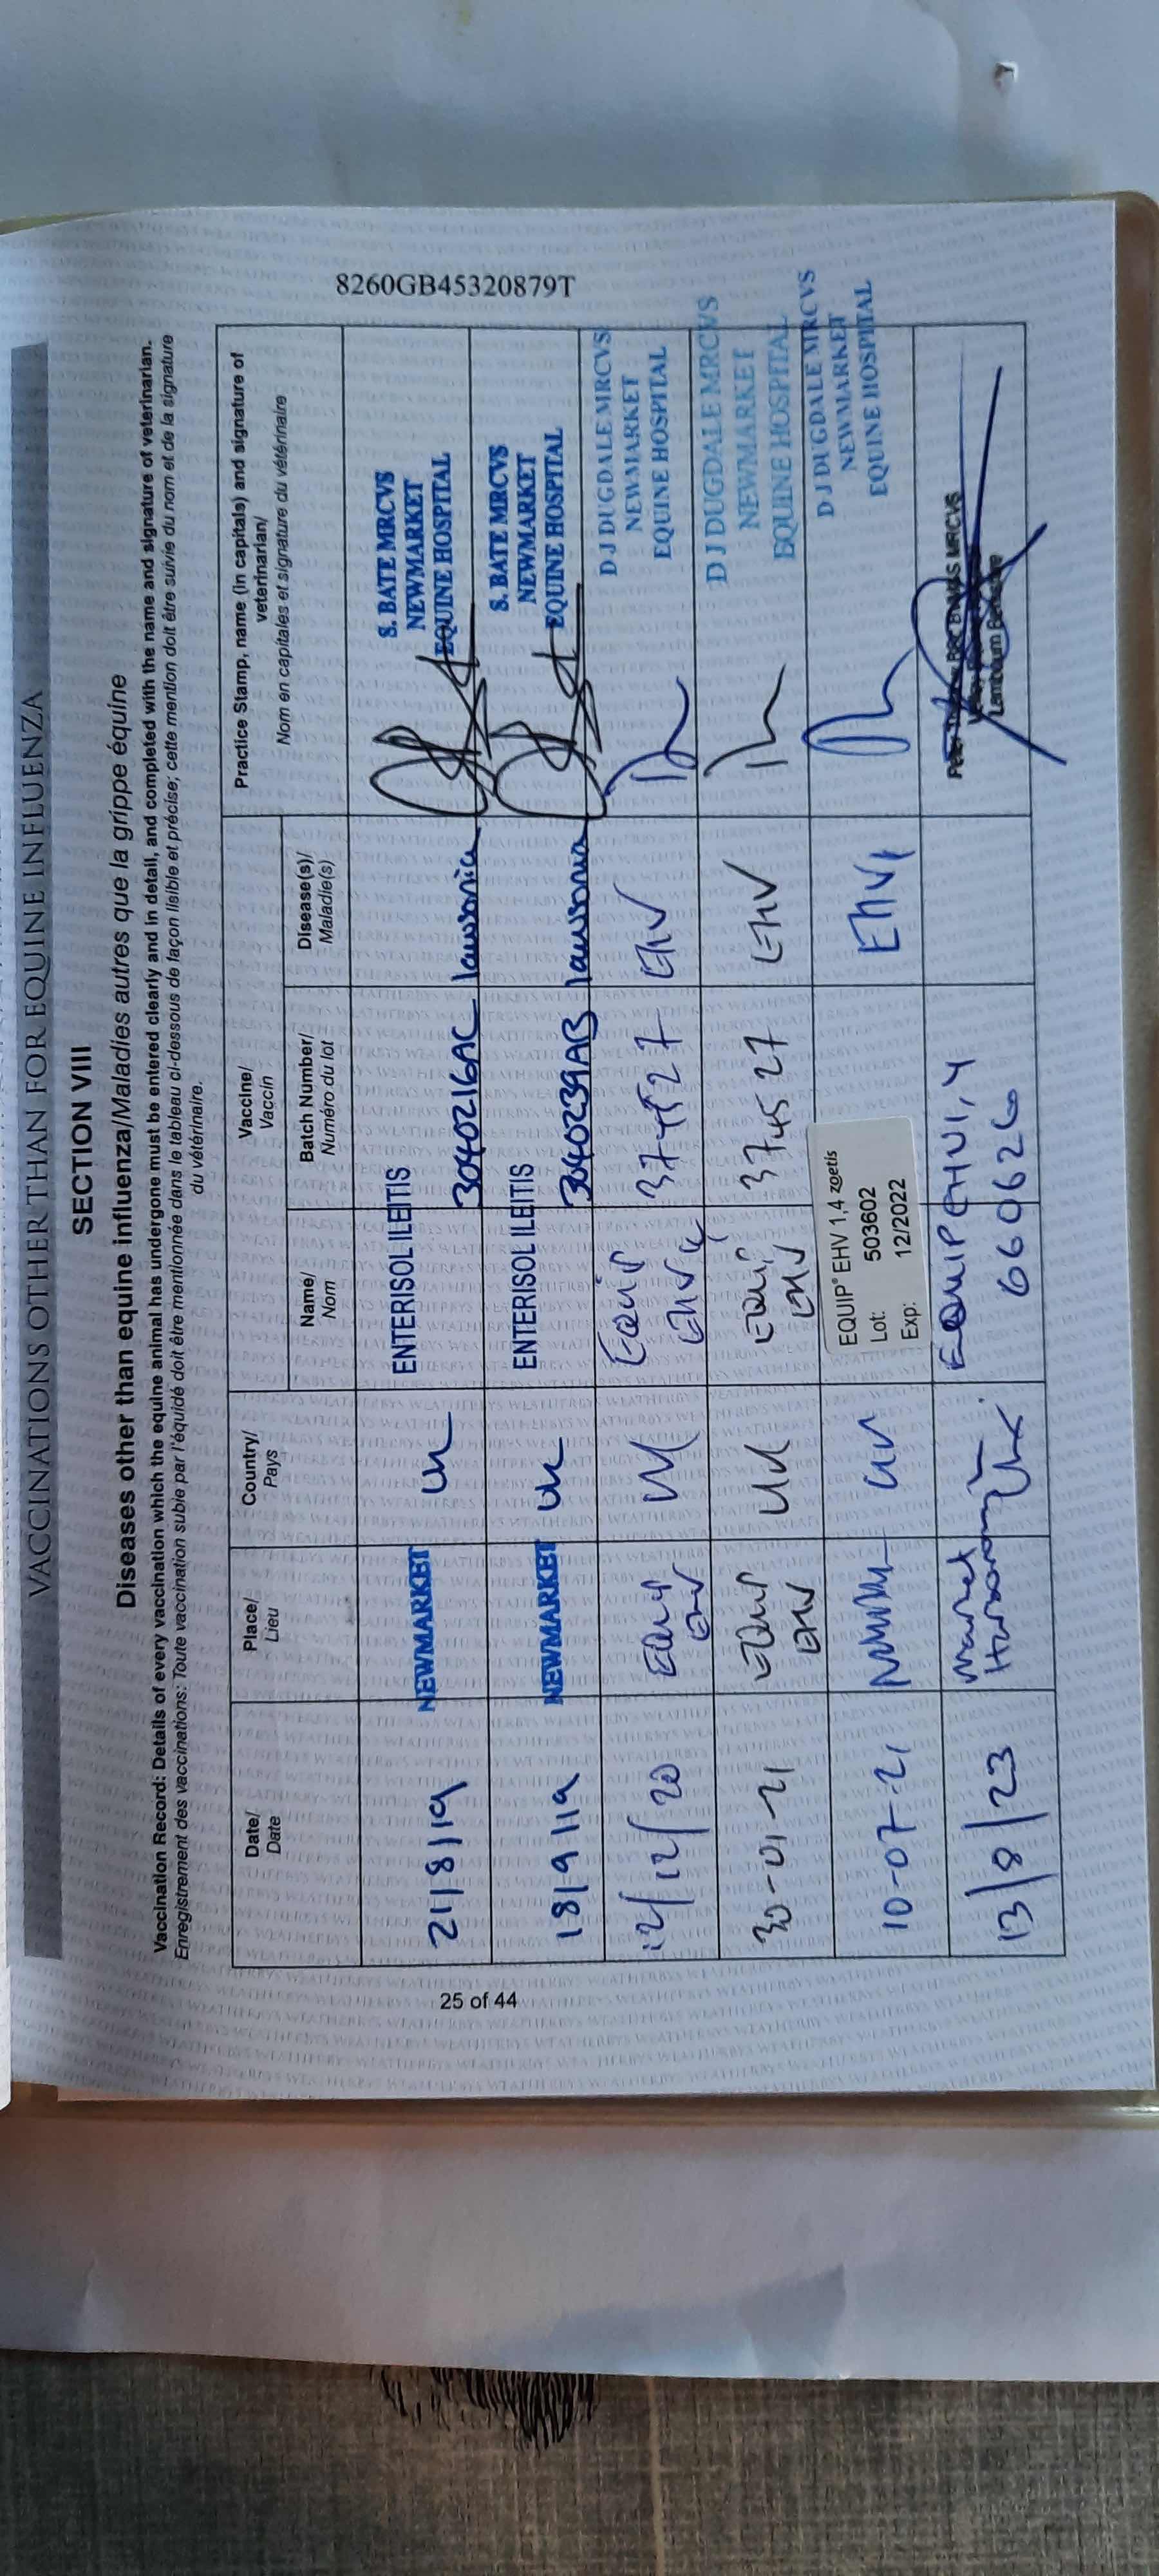 VACCINATIONS OTHER THAN FOR EQUINE INFLUENZA
SECTION VIII
Diseases other than equine influenza/Maladies autres que la grippe équine
Vaccination Record: Details of every vaccination which the equine animal has undergone must be entered clearly and in detail, and completed with the name and signature of veterinarian.
Enregistrement des vaccinations: Toute vaccination subie par l'équidé doit être mentionnée dans le tableau ci-dessous de façon lisible et précise; cette mention doit être suivie du nom et de la signature
du vétérinaire.
Date/
Date
Place/
Lieu
Country/
Pays
Vaccine/
Vaccin
Name/
Nom
Batch Number/
Numéro du lot
Disease(s)/
Maladie(s)
Practice Stamp, name (in capitals) and signature of
veterinarian/
Nom en capitales et signature du vétérinaire
21/8/19
NEWMARKET
UK
ENTERISOL ILEITIS
3040216AC
lawsonia
S. BATE MRCVS
NEWMARKET
EQUINE HOSPITAL
18/9/19
NEWMARKET
UK
ENTERISOL ILEITIS
3040239AB
lawsonia
S. BATE MRCVS
NEWMARKET
EQUINE HOSPITAL
12/12/20
Equip
EHV
UK
Equip
EHV
374527
EHV
D J DUGDALE MRCVS
NEWMARKET
EQUINE HOSPITAL
30-01-21
Equip
EHV
UK
Equip
EHV
374527
EHV
D J DUGDALE MRCVS
NEWMARKET
EQUINE HOSPITAL
10-07-21
UK
EQUIP® EHV 1,4 zoetis
Lot: 503602
Exp: 12/2022
EHV1
D J DUGDALE MRCVS
NEWMARKET
EQUINE HOSPITAL
13/8/23
Market
UK
EQUIP EHV1,4
660626
MRCVS
Lambourn
8260GB45320879T
25 of 44